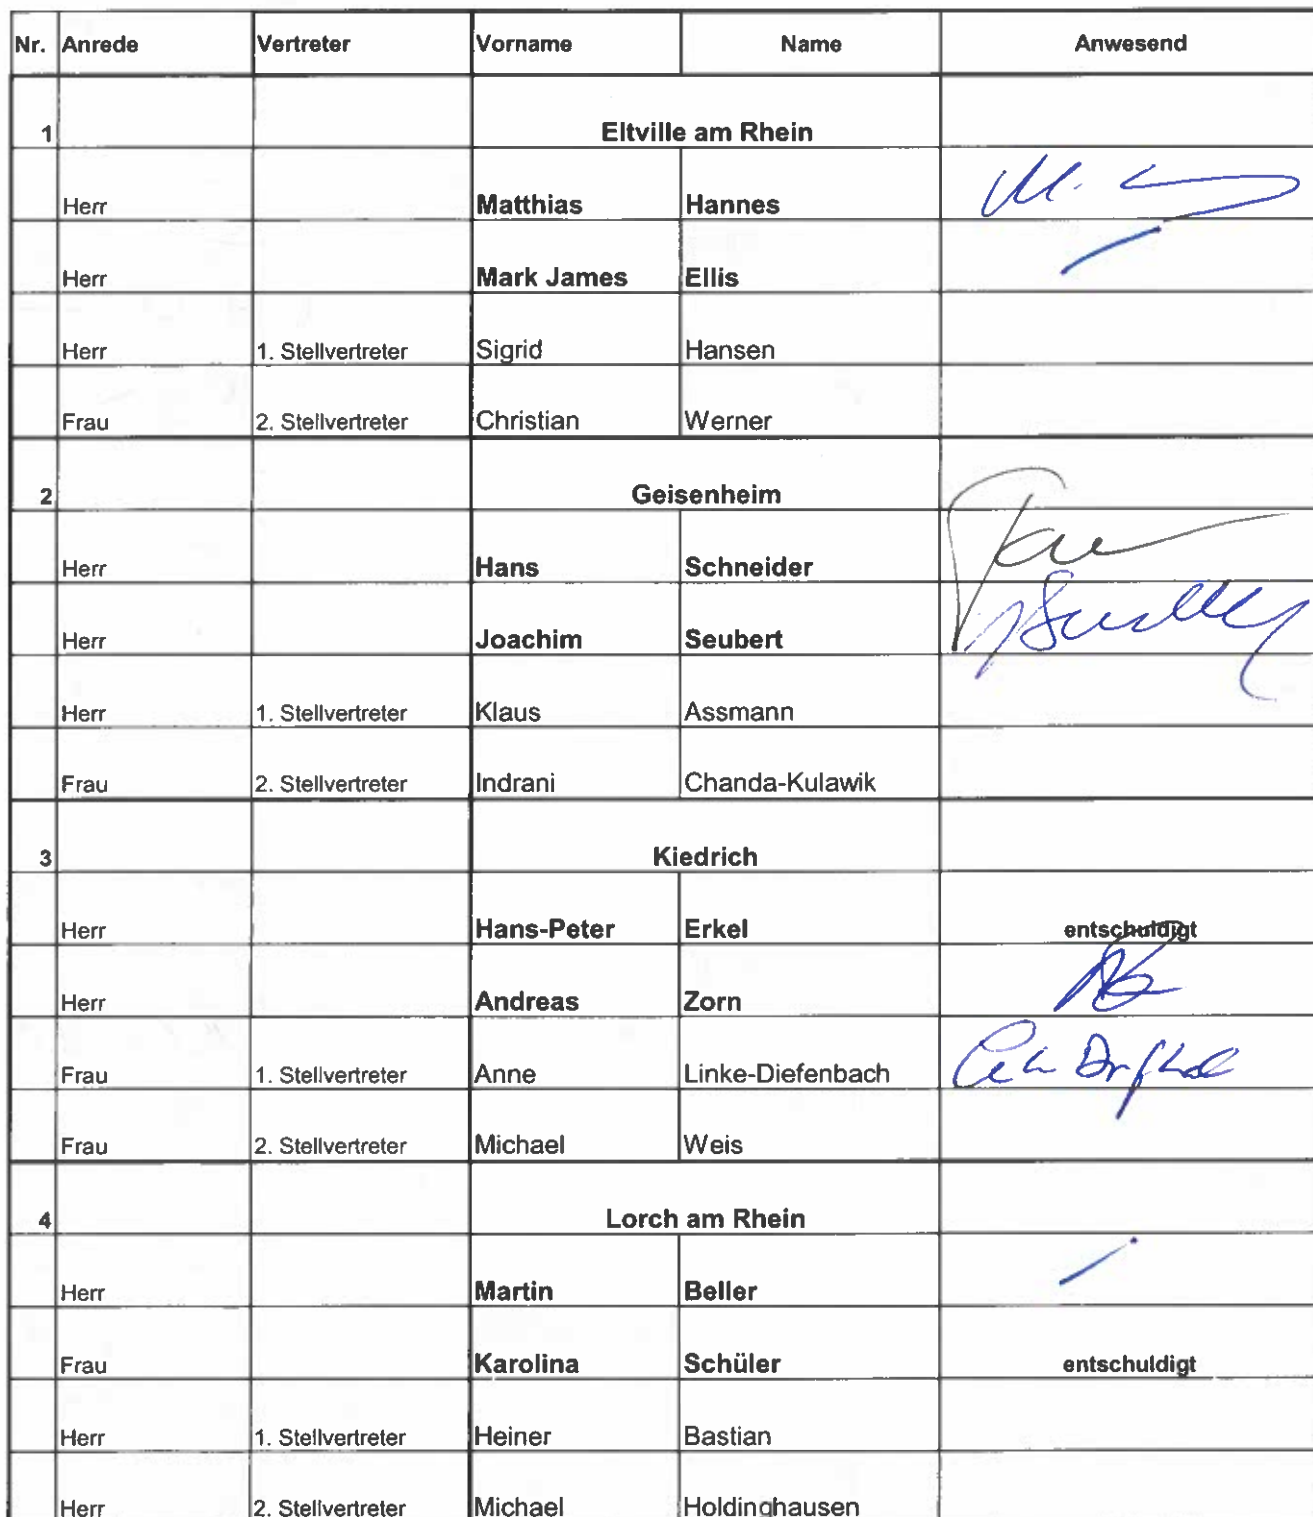 Nr. Anrede Vertreter Vorname Name Anwesend
1 Eltville am Rhein
Herr Matthias Hannes
Herr Mark James Ellis
Herr 1. Stellvertreter Sigrid Hansen
Frau 2. Stellvertreter Christian Werner
2 Geisenheim
Herr Hans Schneider
Herr Joachim Seubert
Herr 1. Stellvertreter Klaus Assmann
Frau 2. Stellvertreter Indrani Chanda-Kulawik
3 Kiedrich
Herr Hans-Peter Erkel entschuldigt
Herr Andreas Zorn
Frau 1. Stellvertreter Anne Linke-Diefenbach
Frau 2. Stellvertreter Michael Weis
4 Lorch am Rhein
Herr Martin Beller
Frau Karolina Schüler entschuldigt
Herr 1. Stellvertreter Heiner Bastian
Herr 2. Stellvertreter Michael Holdinghausen